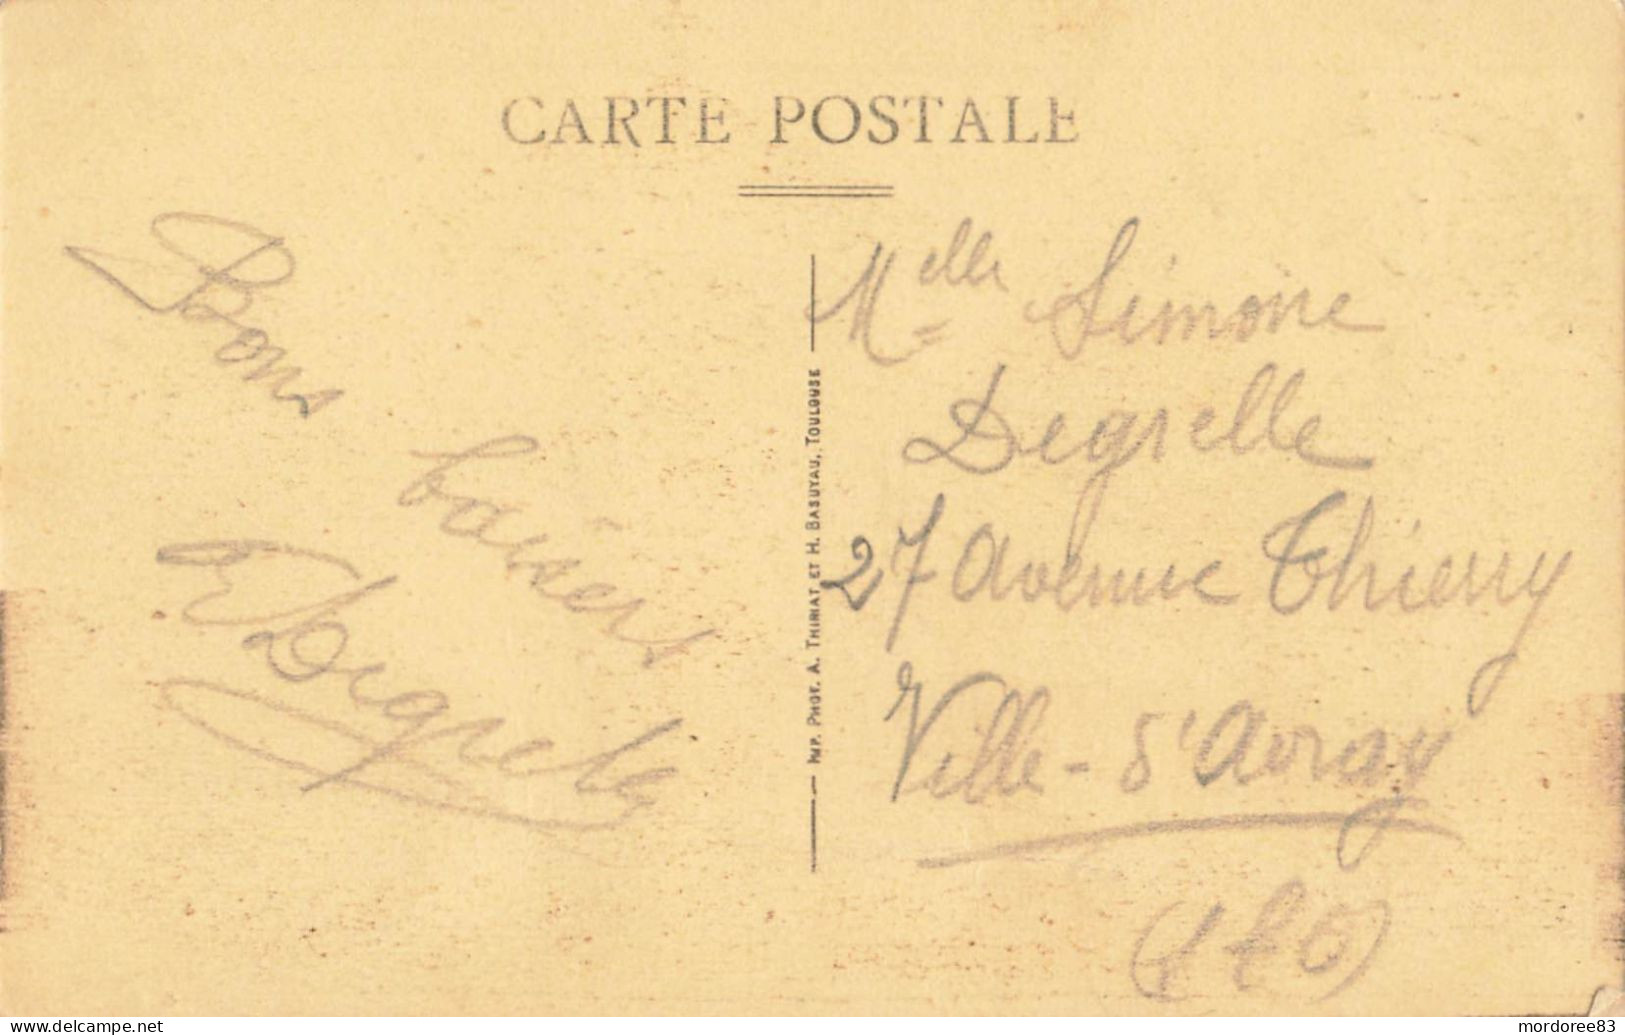 CARTE POSTALE
Bons
baisers
Degrelle
IMP. PHOT. A. THIRIAT ET H. BASUYAU, TOULOUSE
Melle Simone
Degrelle
27 avenue Thierry
Ville-d'Avray
(S & O)
delcampe.net
mordoree83